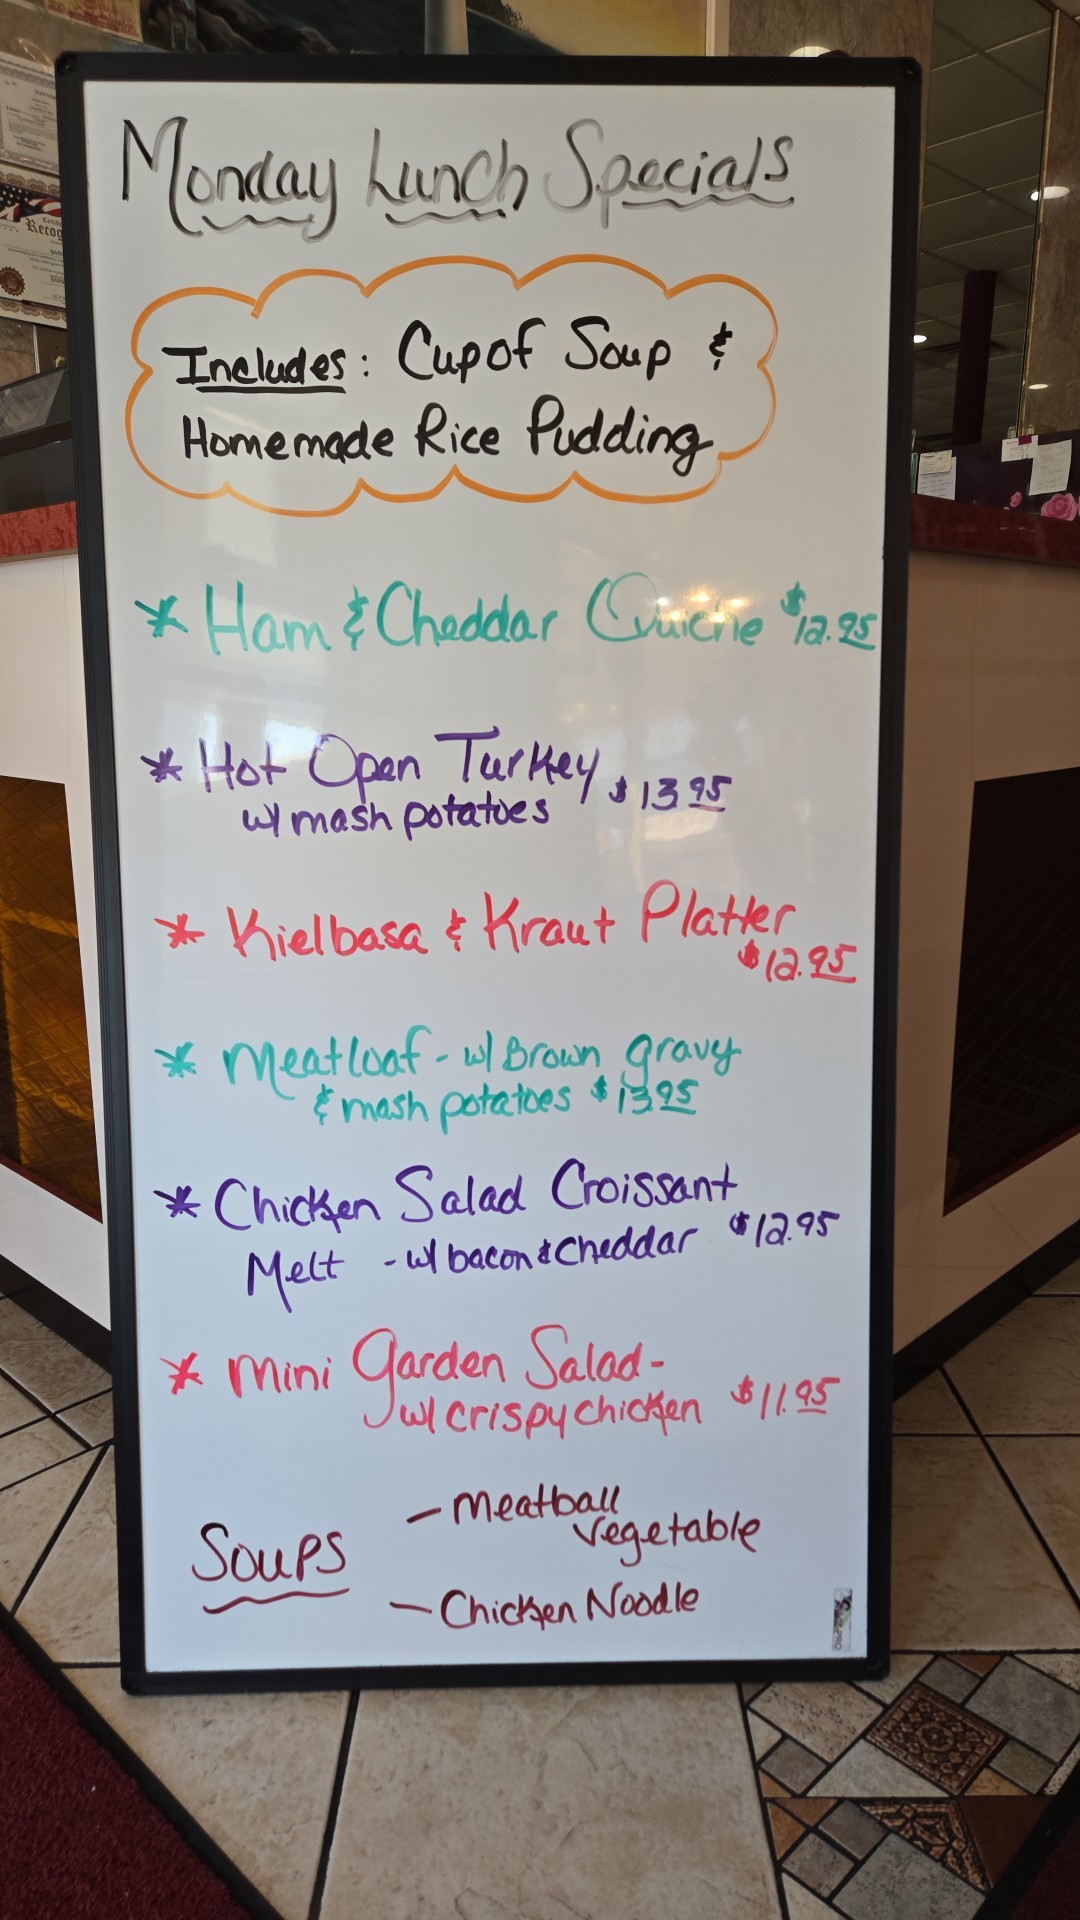 Monday Lunch Specials
Includes: Cup of Soup &
Homemade Rice Pudding
* Ham & Cheddar Quiche $12.95
* Hot Open Turkey
w/ mash potatoes $13.95
* Kielbasa & Kraut Platter
$12.95
* Meatloaf - w/ Brown gravy
& mash potatoes $13.95
* Chicken Salad Croissant
Melt - w/ bacon & Cheddar $12.95
* Mini Garden Salad -
w/ crispy chicken $11.95
Soups
- Meatball
Vegetable
- Chicken Noodle
Recog